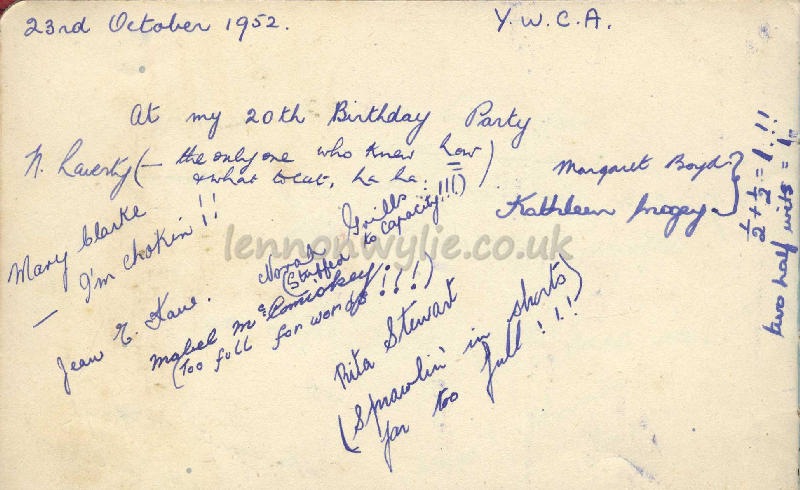 23rd October 1952.
Y.W.C.A.
At my 20th Birthday Party
N. Laverty (– the only one who knew how
& what to eat, ha ha.)
Margaret Boyd
Kathleen
½ + ½ = 1!!!
two half wits = 1.
Mary Clarke
– I'm chokin!!
Norah Grills
(Stuffed to capacity!!!)
Jean E. Kane.
Mabel McComiskey.
(Too full for words!!!)
Rita Stewart
(Sprawlin' in shorts)
far too full!!!
lennonwylie.co.uk